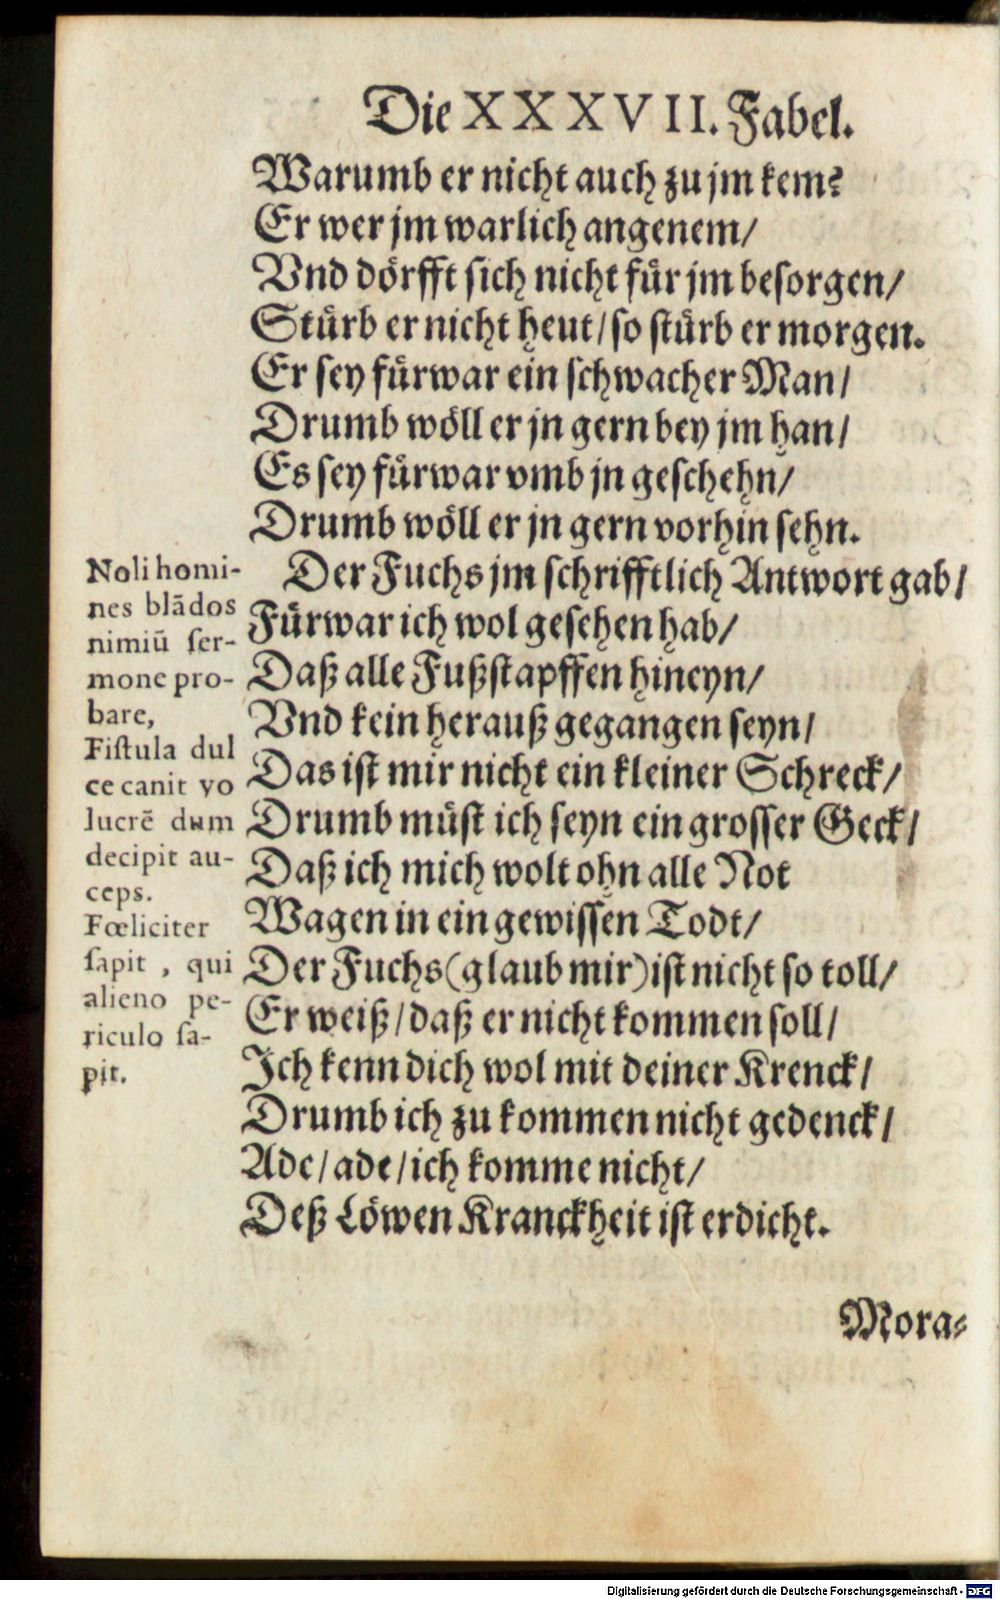 Die XXXVII. Fabel.
Warumb er nicht auch zu jm kem?
Er wer jm warlich angenem/
Vnd dörfft sich nicht für jm besorgen/
Stürb er nicht heut/so stürb er morgen.
Er sey fürwar ein schwacher Man/
Drumb wöll er jn gern bey jm han/
Es sey fürwar vmb jn geschehn/
Drumb wöll er jn gern vorhin sehn.
Der Fuchs jm schrifftlich Antwort gab/
Fürwar ich wol gesehen hab/
Daß alle Fußstapffen hineyn/
Vnd kein herauß gegangen seyn/
Das ist mir nicht ein kleiner Schreck/
Drumb müst ich seyn ein grosser Geck/
Daß ich mich wolt ohn alle Not
Wagen in ein gewissen Todt/
Der Fuchs (glaub mir) ist nicht so toll/
Er weiß/daß er nicht kommen soll/
Ich kenn dich wol mit deiner Krenck/
Drumb ich zu kommen nicht gedenck/
Ade/ade/ich komme nicht/
Deß Löwen Kranckheit ist erdicht.
Noli homi-
nes blādos
nimiū ser-
mone pro-
bare,
Fistula dul
ce canit vo
lucrē dum
decipit au-
ceps.
Fœliciter
sapit , qui
alieno pe-
riculo sa-
pit.
Mora-
Digitalisierung gefördert durch die Deutsche Forschungsgemeinschaft - DFG